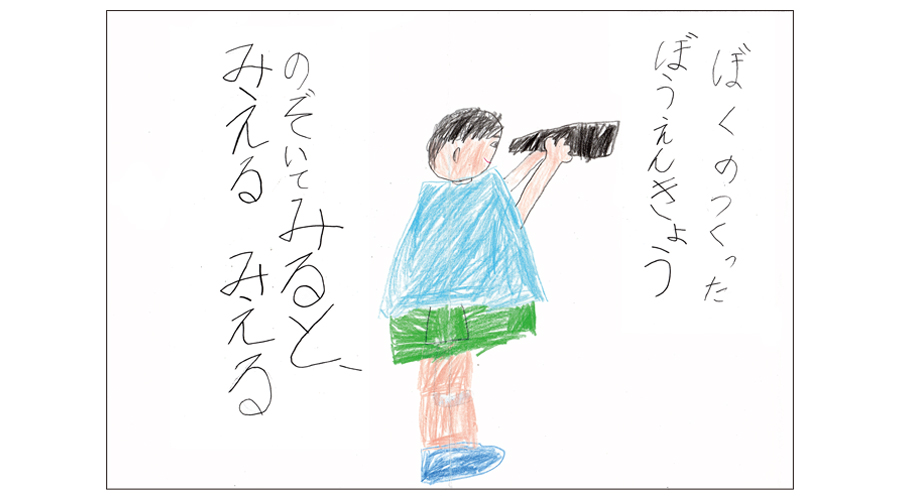 ぼくのつくった
ぼうえんきょう
のぞいてみると、
みえる　みえる